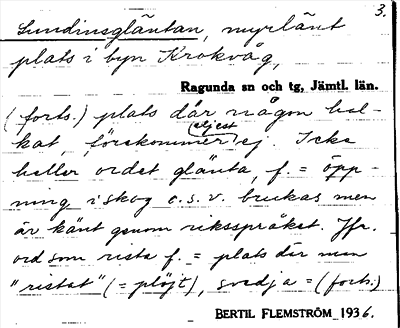 3.
Lundinsgläntan, myrlänt
plats i byn Krokvåg,
Ragunda sn och tg, Jämtl. län.
(forts.) plats där någon bal-
kat, förekommer eljest ej. Icke
heller ordet glänta, f. = öpp-
ning i skog o.s.v. brukas men
är känt genom riksspråket. Jfr.
ord som rista f. = plats där man
"ristat" (= plöjt), svedja = (forts.)
BERTIL FLEMSTRÖM 1936.